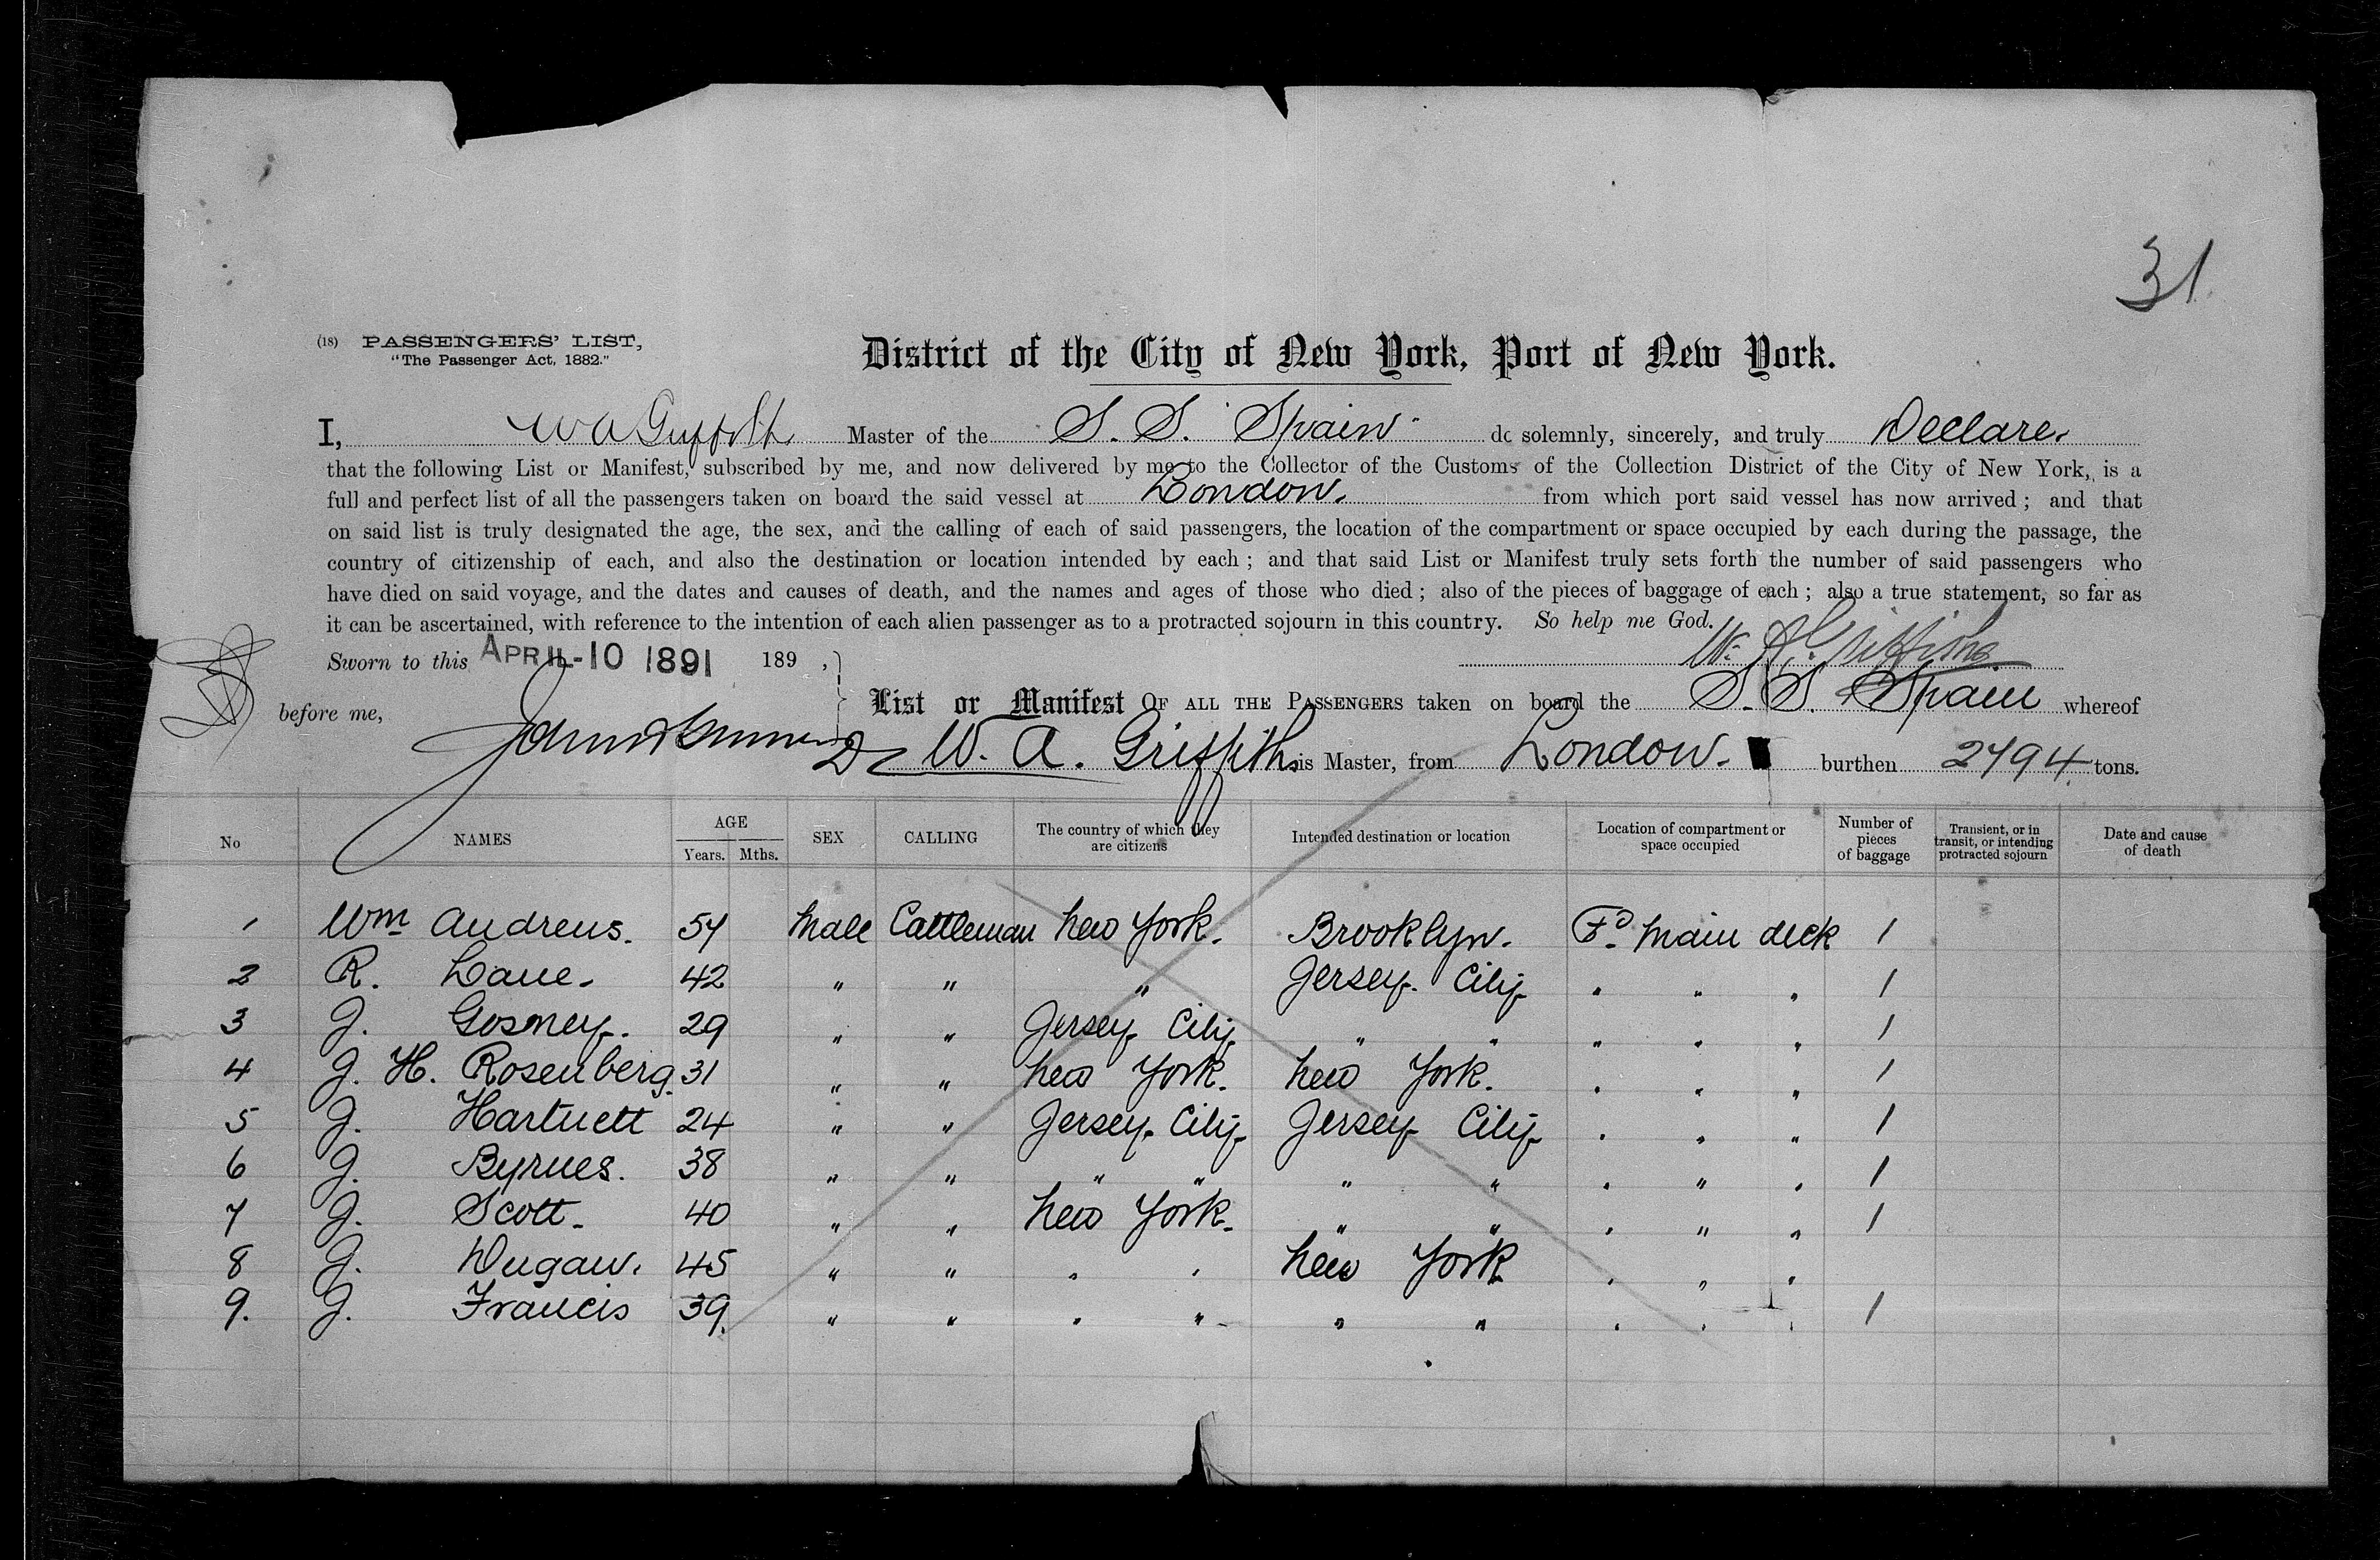 31
(18) PASSENGERS' LIST,
"The Passenger Act, 1882."
District of the City of New York, Port of New York.
I, W A Griffith Master of the S. S. "Spain" do solemnly, sincerely, and truly Declare.
that the following List or Manifest, subscribed by me, and now delivered by me to the Collector of the Customs of the Collection District of the City of New York, is a
full and perfect list of all the passengers taken on board the said vessel at London. from which port said vessel has now arrived ; and that
on said list is truly designated the age, the sex, and the calling of each of said passengers, the location of the compartment or space occupied by each during the passage, the
country of citizenship of each, and also the destination or location intended by each ; and that said List or Manifest truly sets forth the number of said passengers who
have died on said voyage, and the dates and causes of death, and the names and ages of those who died ; also of the pieces of baggage of each ; also a true statement, so far as
it can be ascertained, with reference to the intention of each alien passenger as to a protracted sojourn in this country. So help me God.
Sworn to this APRIL-10 1891 189 , W. A. Griffiths
before me, List or Manifest OF ALL THE PASSENGERS taken on board the S. S. Spain whereof
W. A. Griffith is Master, from London. burthen 2794 tons.
No NAMES AGE Years. Mths. SEX CALLING The country of which they are citizens Intended destination or location Location of compartment or space occupied Number of pieces of baggage Transient, or in transit, or intending protracted sojourn Date and cause of death
1 Wm Andrews. 54 Male Cattleman New York. Brooklyn. Fd. Main deck 1
2 R. Lane. 42 " " " Jersey City " " " 1
3 J. Gosney. 29 " " Jersey City " " " " " 1
4 J. H. Rosenberg. 31 " " New York. New York. " " " 1
5 J. Hartnett 24 " " Jersey City Jersey City " " " 1
6 J. Byrnes. 38 " " " " " " " " " 1
7 J. Scott. 40 " " New York. " " " " " 1
8 J. Dugan. 45 " " " " New York " " "
9. J. Francis 39. " " " " " " " " " 1